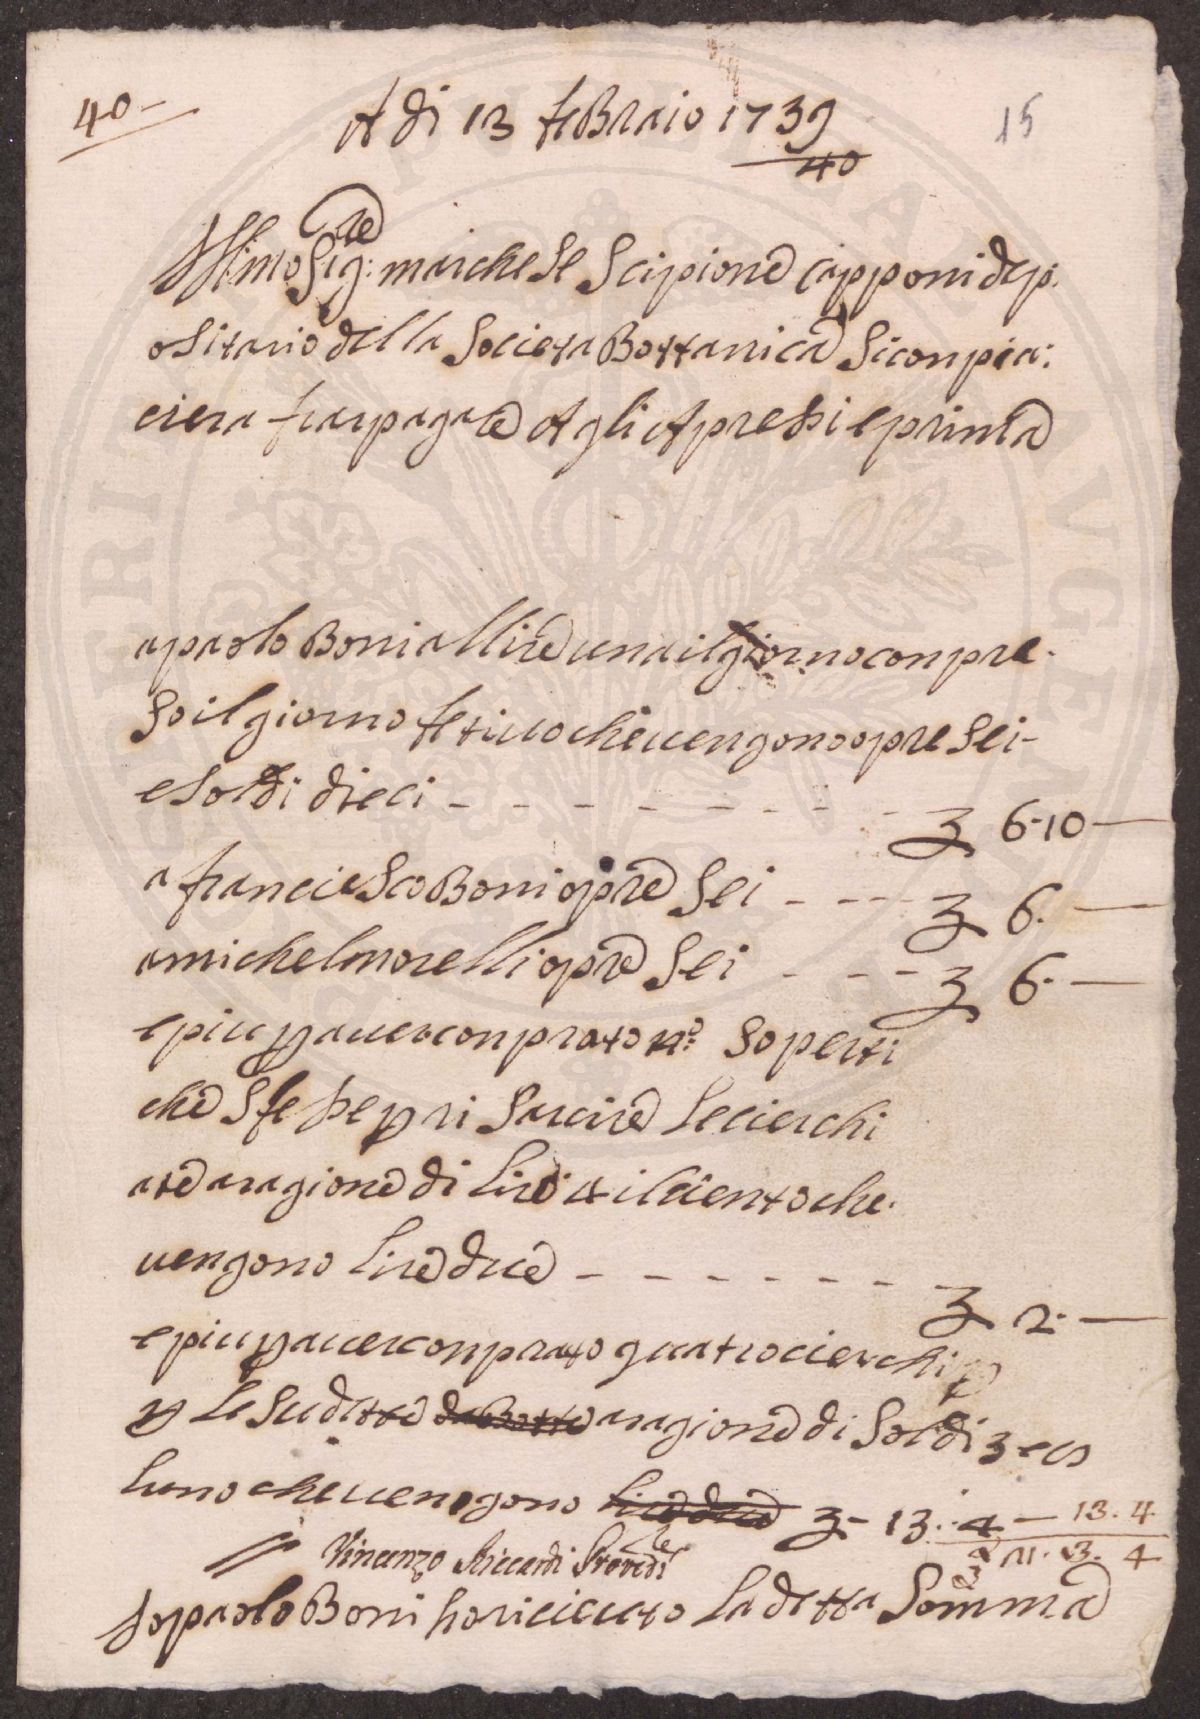 40-
A di 13 feBraio 1739
40
15
Ill:mo Sig:re marchese Scipione Capponi dep:
ositario della Societa Bottanica Si conpia:
ciera far pagare A gli Apressi e prima
a paolo Boni a llire una il giorno conpre-
so il giorno festiuo che uengono opre sei-
e soldi dieci - - - - - - - - 6-10-
a franciesco Boni opre sei - - - - 6.-
a michel morelli opre sei - - - 6.-
e piu p auer conprato no: 50 perti
che p ri sarcire le cierchi
ate a ragione di lire 4 il ciento che
uengono lire due - - - - - - - 2.-
e piu p auer conprato quatro cierchi
p le sudette da Botte a ragione di soldi 3 e 4
luno che uengono lire due - 13..4- 13.4
31.3.4
Vincenzo Riccardi Proved:re
Io paolo Boni ho riceuuto la detta somma